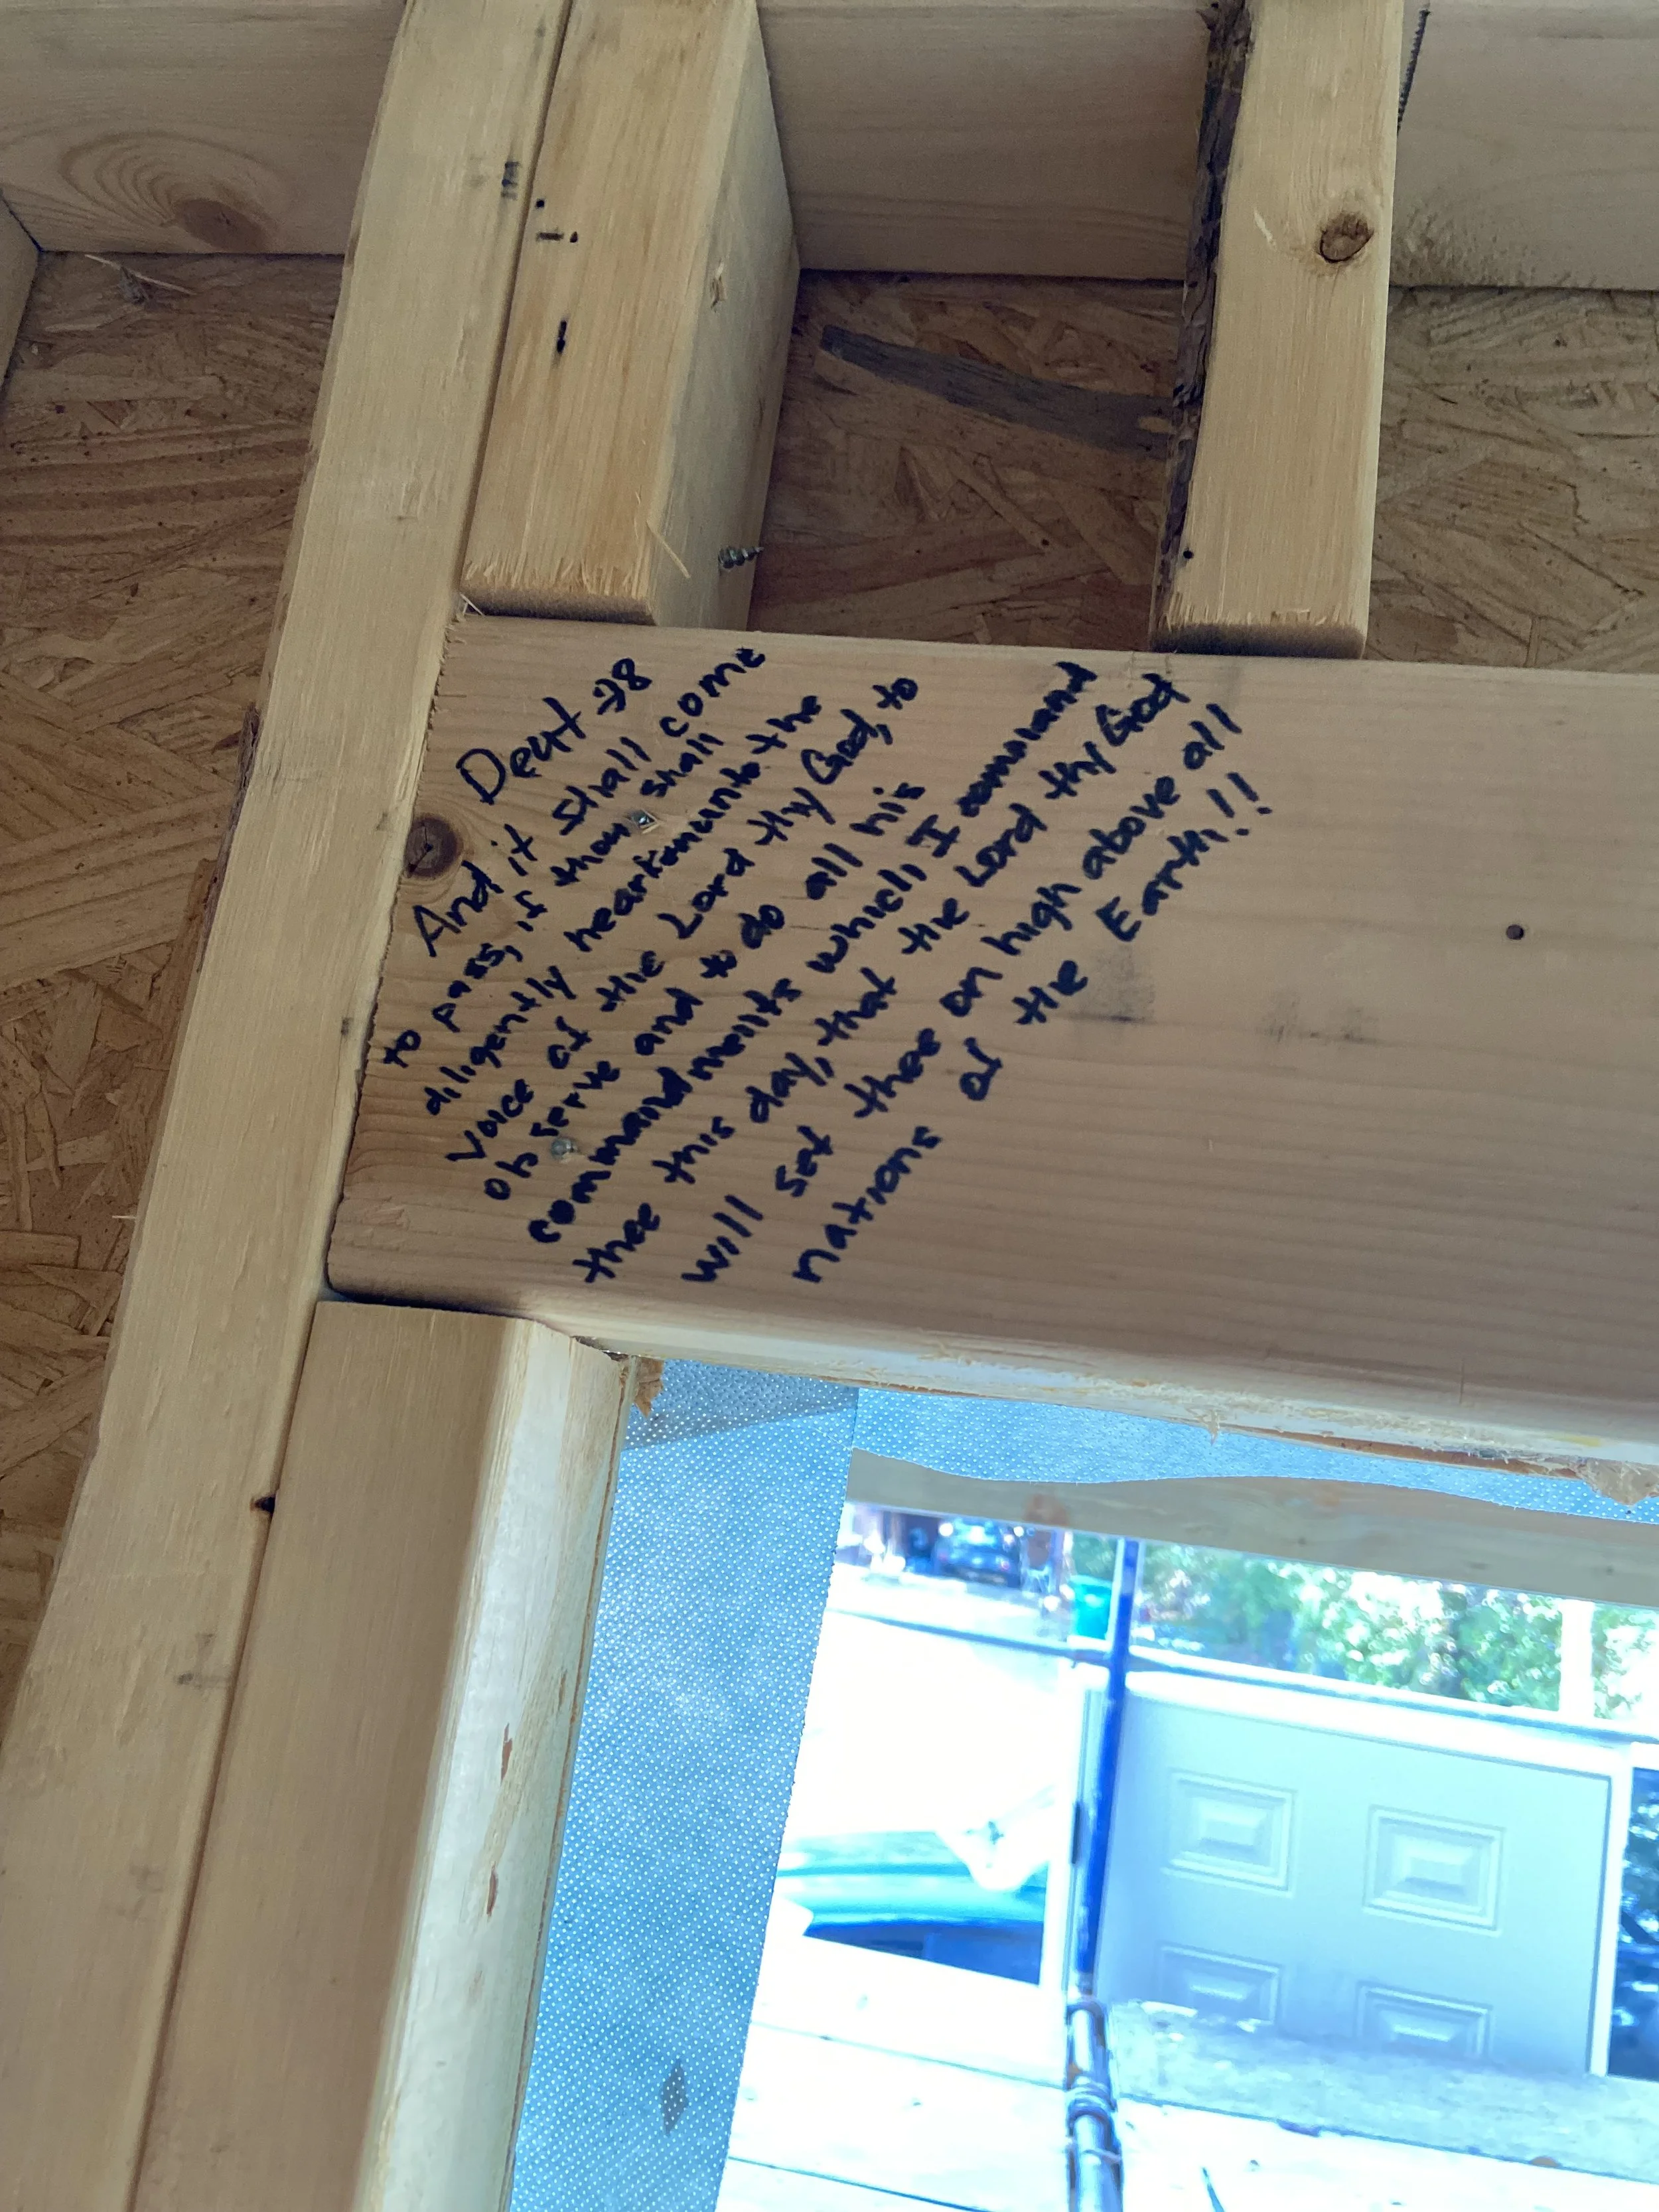 Deut 28
And it shall come
to pass, if thou shall
diligently hearken unto the
voice of the Lord thy God, to
observe and to do all his
commandments which I command
thee this day, that the Lord thy God
will set thee on high above all
nations of the Earth!!